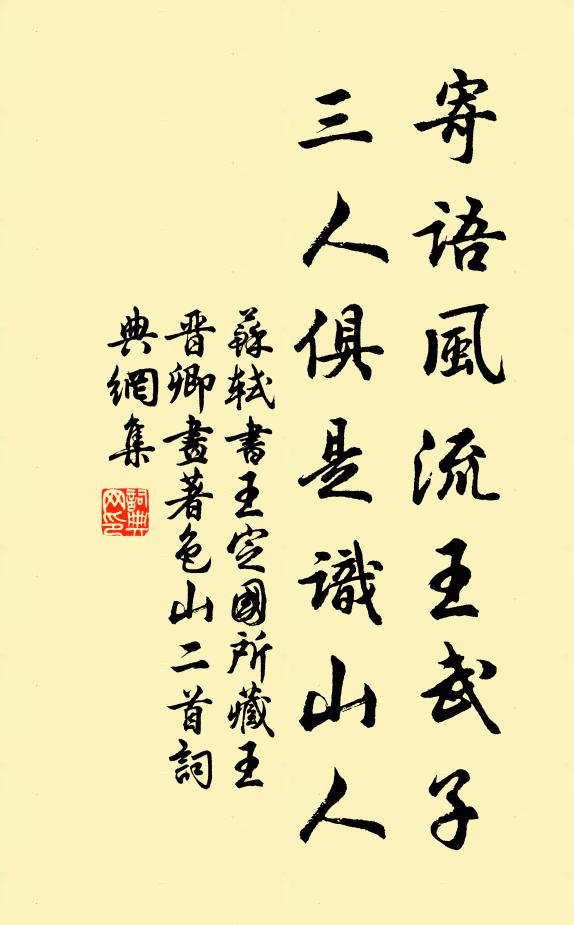 寄語風流王武子
三人俱是識山人
蘇軾書王定國所藏王
晋卿畫著色山二首詞
典網集
詞典网印